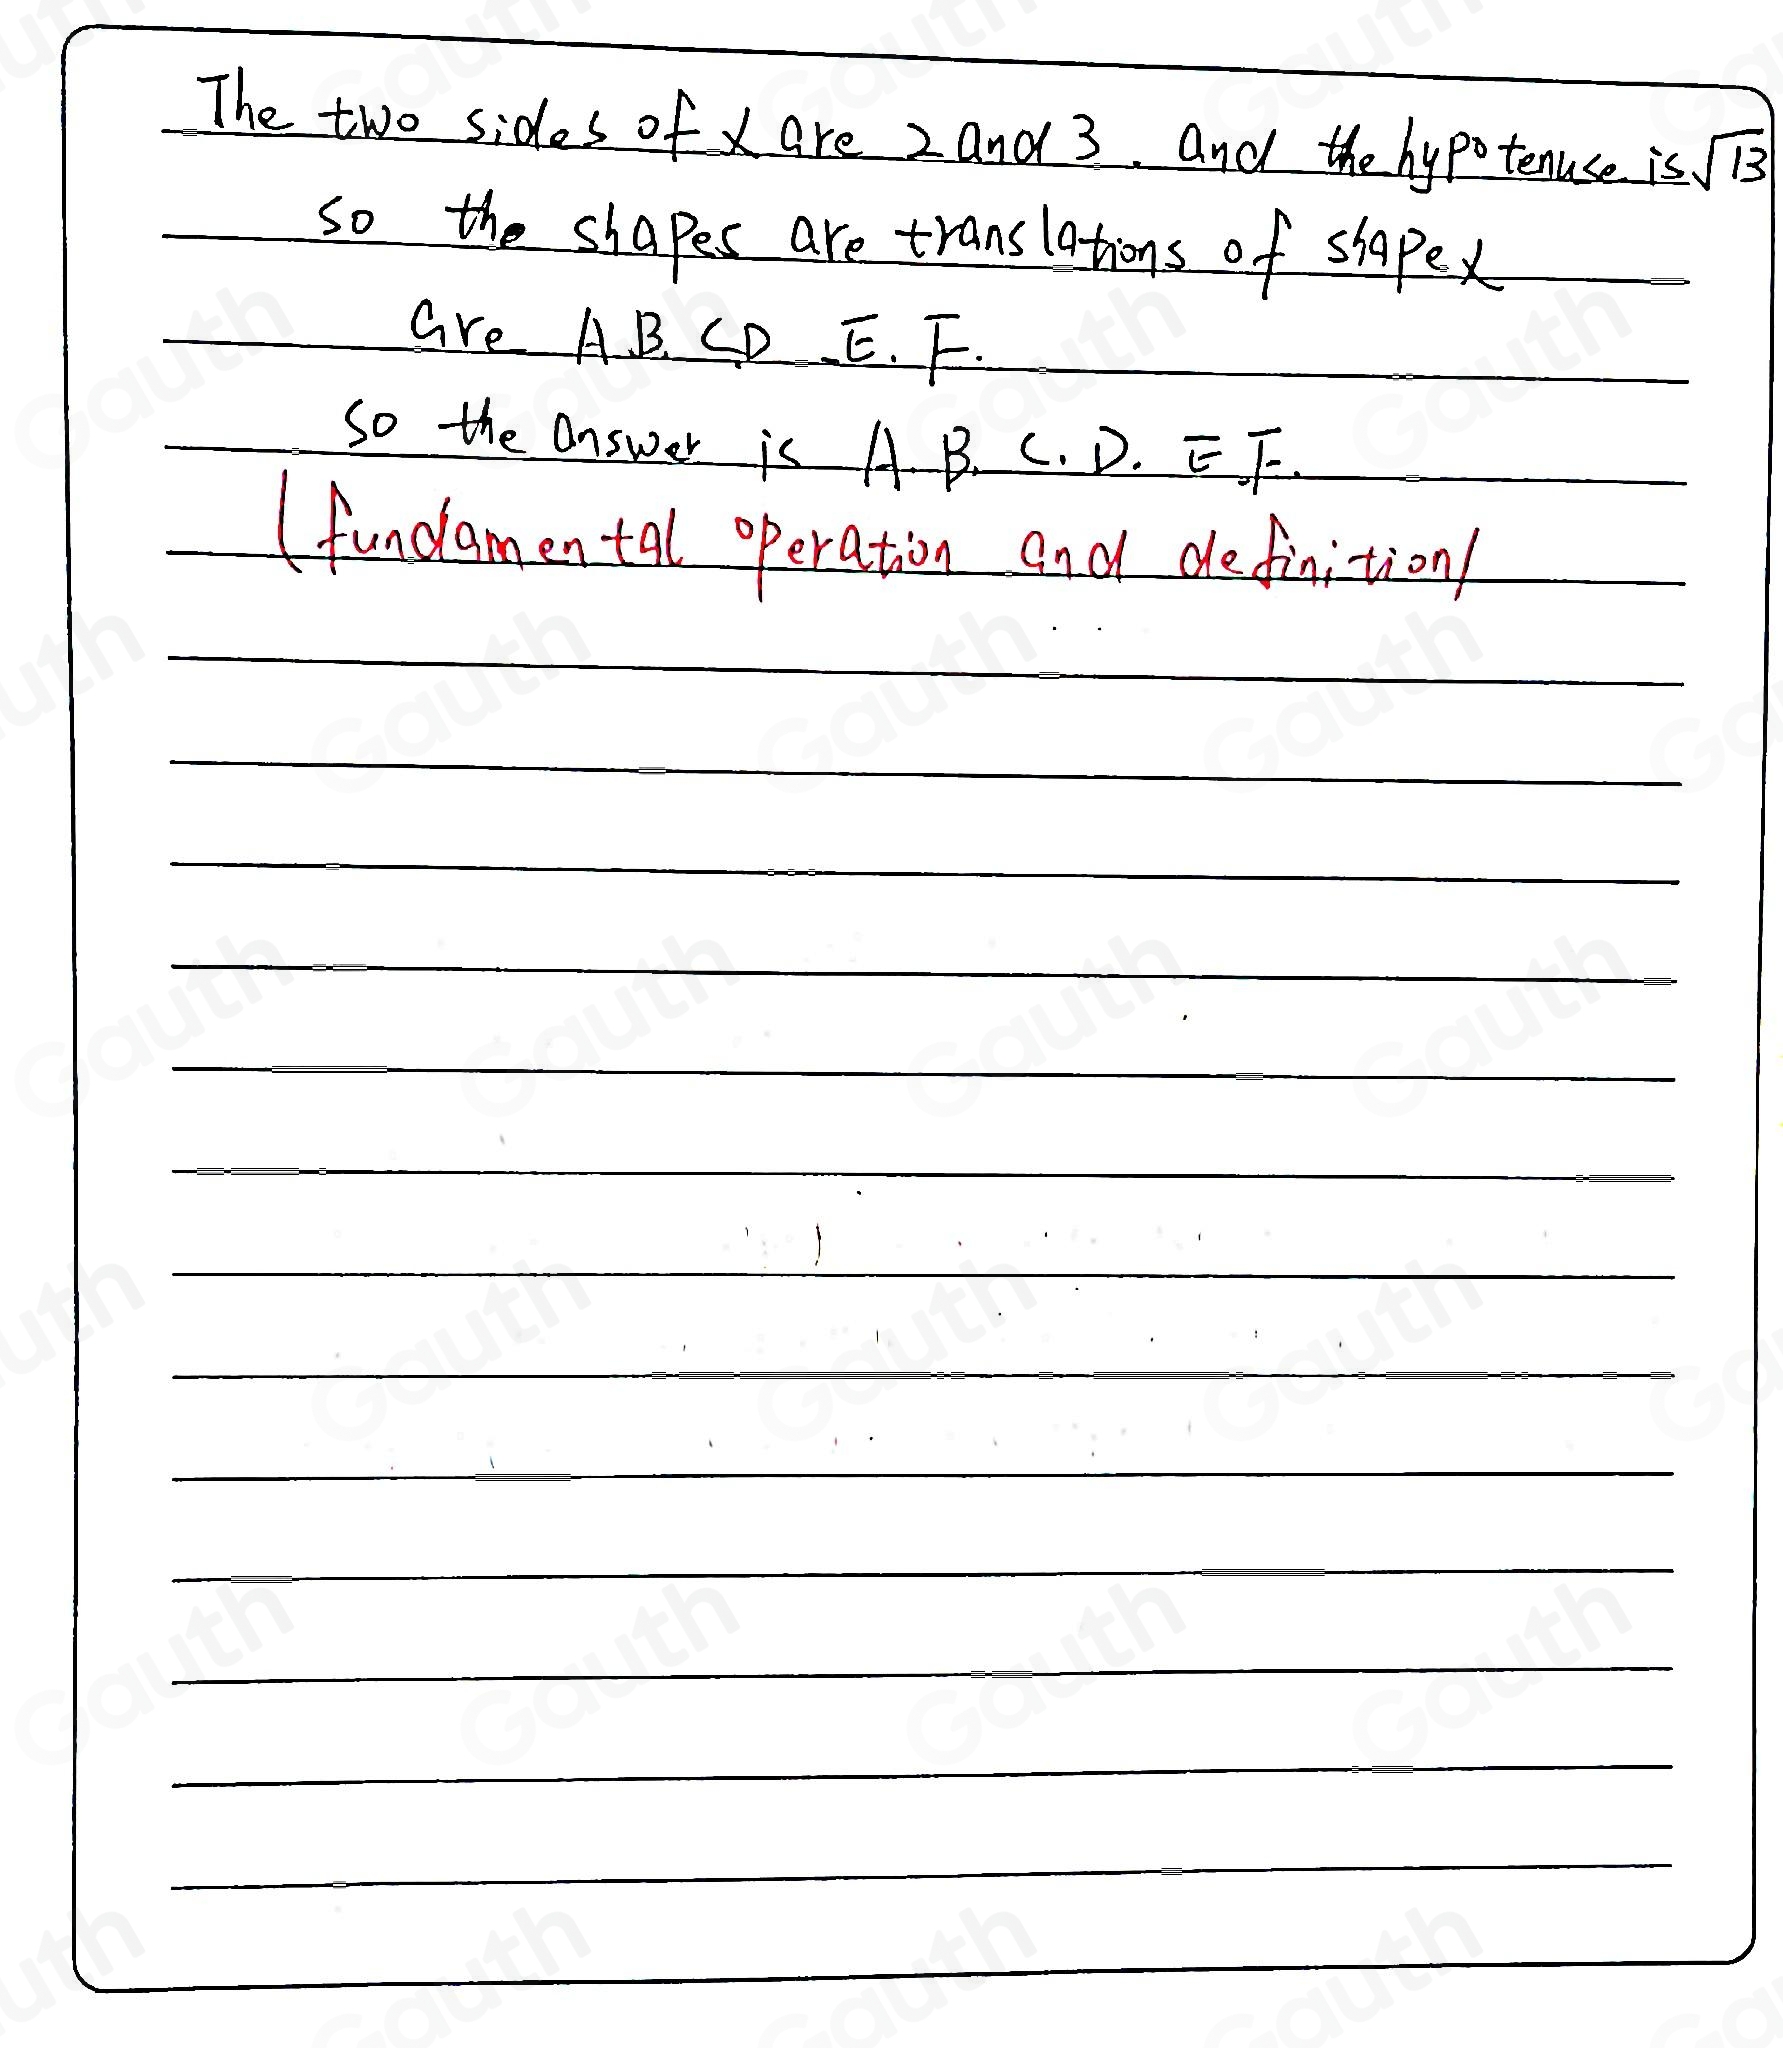 The two sides of X are 2 and 3. and the hypotenuse is √13
so the shapes are translations of shape X
are A.B. C.D E. F.
so the answer is A. B. C. D. E.F.
(fundamental operation and definition)